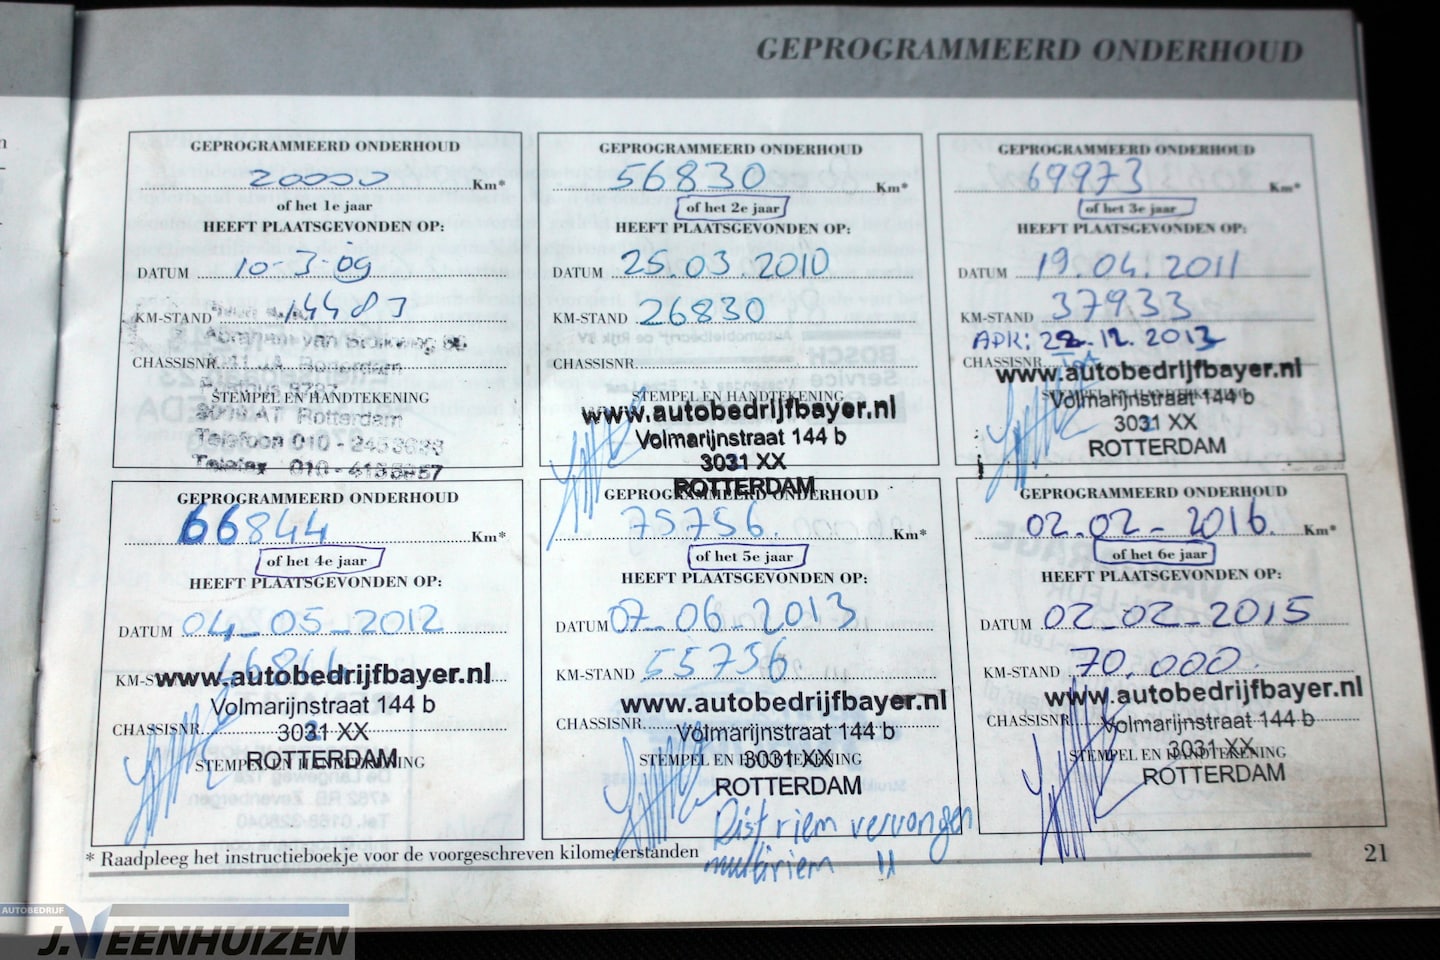 GEPROGRAMMEERD ONDERHOUD
GEPROGRAMMEERD ONDERHOUD
20000 Km*
of het 1e jaar
HEEFT PLAATSGEVONDEN OP:
DATUM 10-3-09
KM-STAND 14483
CHASSISNR.
STEMPEL EN HANDTEKENING
Rotterdam
Telefoon 010 -
Telefax 010 -
GEPROGRAMMEERD ONDERHOUD
56830 Km*
of het 2e jaar
HEEFT PLAATSGEVONDEN OP:
DATUM 25.03.2010
KM-STAND 26830
CHASSISNR.
STEMPEL EN HANDTEKENING
www.autobedrijfbayer.nl
Volmarijnstraat 144 b
3031 XX
ROTTERDAM
GEPROGRAMMEERD ONDERHOUD
69973 Km*
of het 3e jaar
HEEFT PLAATSGEVONDEN OP:
DATUM 19.04.2011
KM-STAND 37933
APK: 22.12.2013
CHASSISNR.
www.autobedrijfbayer.nl
STEMPEL EN HANDTEKENING
Volmarijnstraat 144 b
3031 XX
ROTTERDAM
GEPROGRAMMEERD ONDERHOUD
66844 Km*
of het 4e jaar
HEEFT PLAATSGEVONDEN OP:
DATUM 04-05-2012
KM-STAND 46844
www.autobedrijfbayer.nl
Volmarijnstraat 144 b
CHASSISNR.
3031 XX
STEMPEL EN HANDTEKENING
ROTTERDAM
GEPROGRAMMEERD ONDERHOUD
75756. Km*
of het 5e jaar
HEEFT PLAATSGEVONDEN OP:
DATUM 07-06-2013
KM-STAND 55756
www.autobedrijfbayer.nl
CHASSISNR.
Volmarijnstraat 144 b
STEMPEL EN HANDTEKENING
3031 XX
ROTTERDAM
Dist riem vervangen
multiriem !!
GEPROGRAMMEERD ONDERHOUD
02.02-2016. Km*
of het 6e jaar
HEEFT PLAATSGEVONDEN OP:
DATUM 02-02-2015
KM-STAND 70.000.
www.autobedrijfbayer.nl
CHASSISNR.
Volmarijnstraat 144 b
STEMPEL EN HANDTEKENING
3031 XX
ROTTERDAM
* Raadpleeg het instructieboekje voor de voorgeschreven kilometerstanden
21
AUTOBEDRIJF
J. VEENHUIZEN